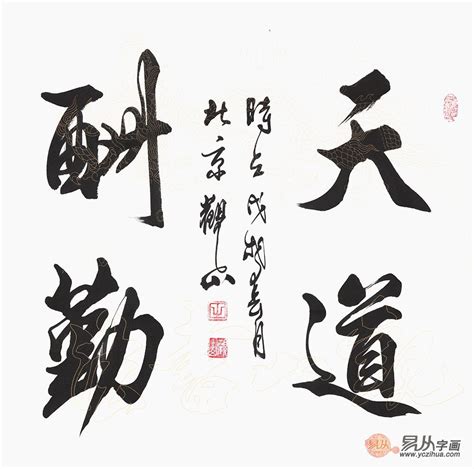 天道
酬勤
時在戊戌春月
北京觀山
易从字画
www.yczihua.com